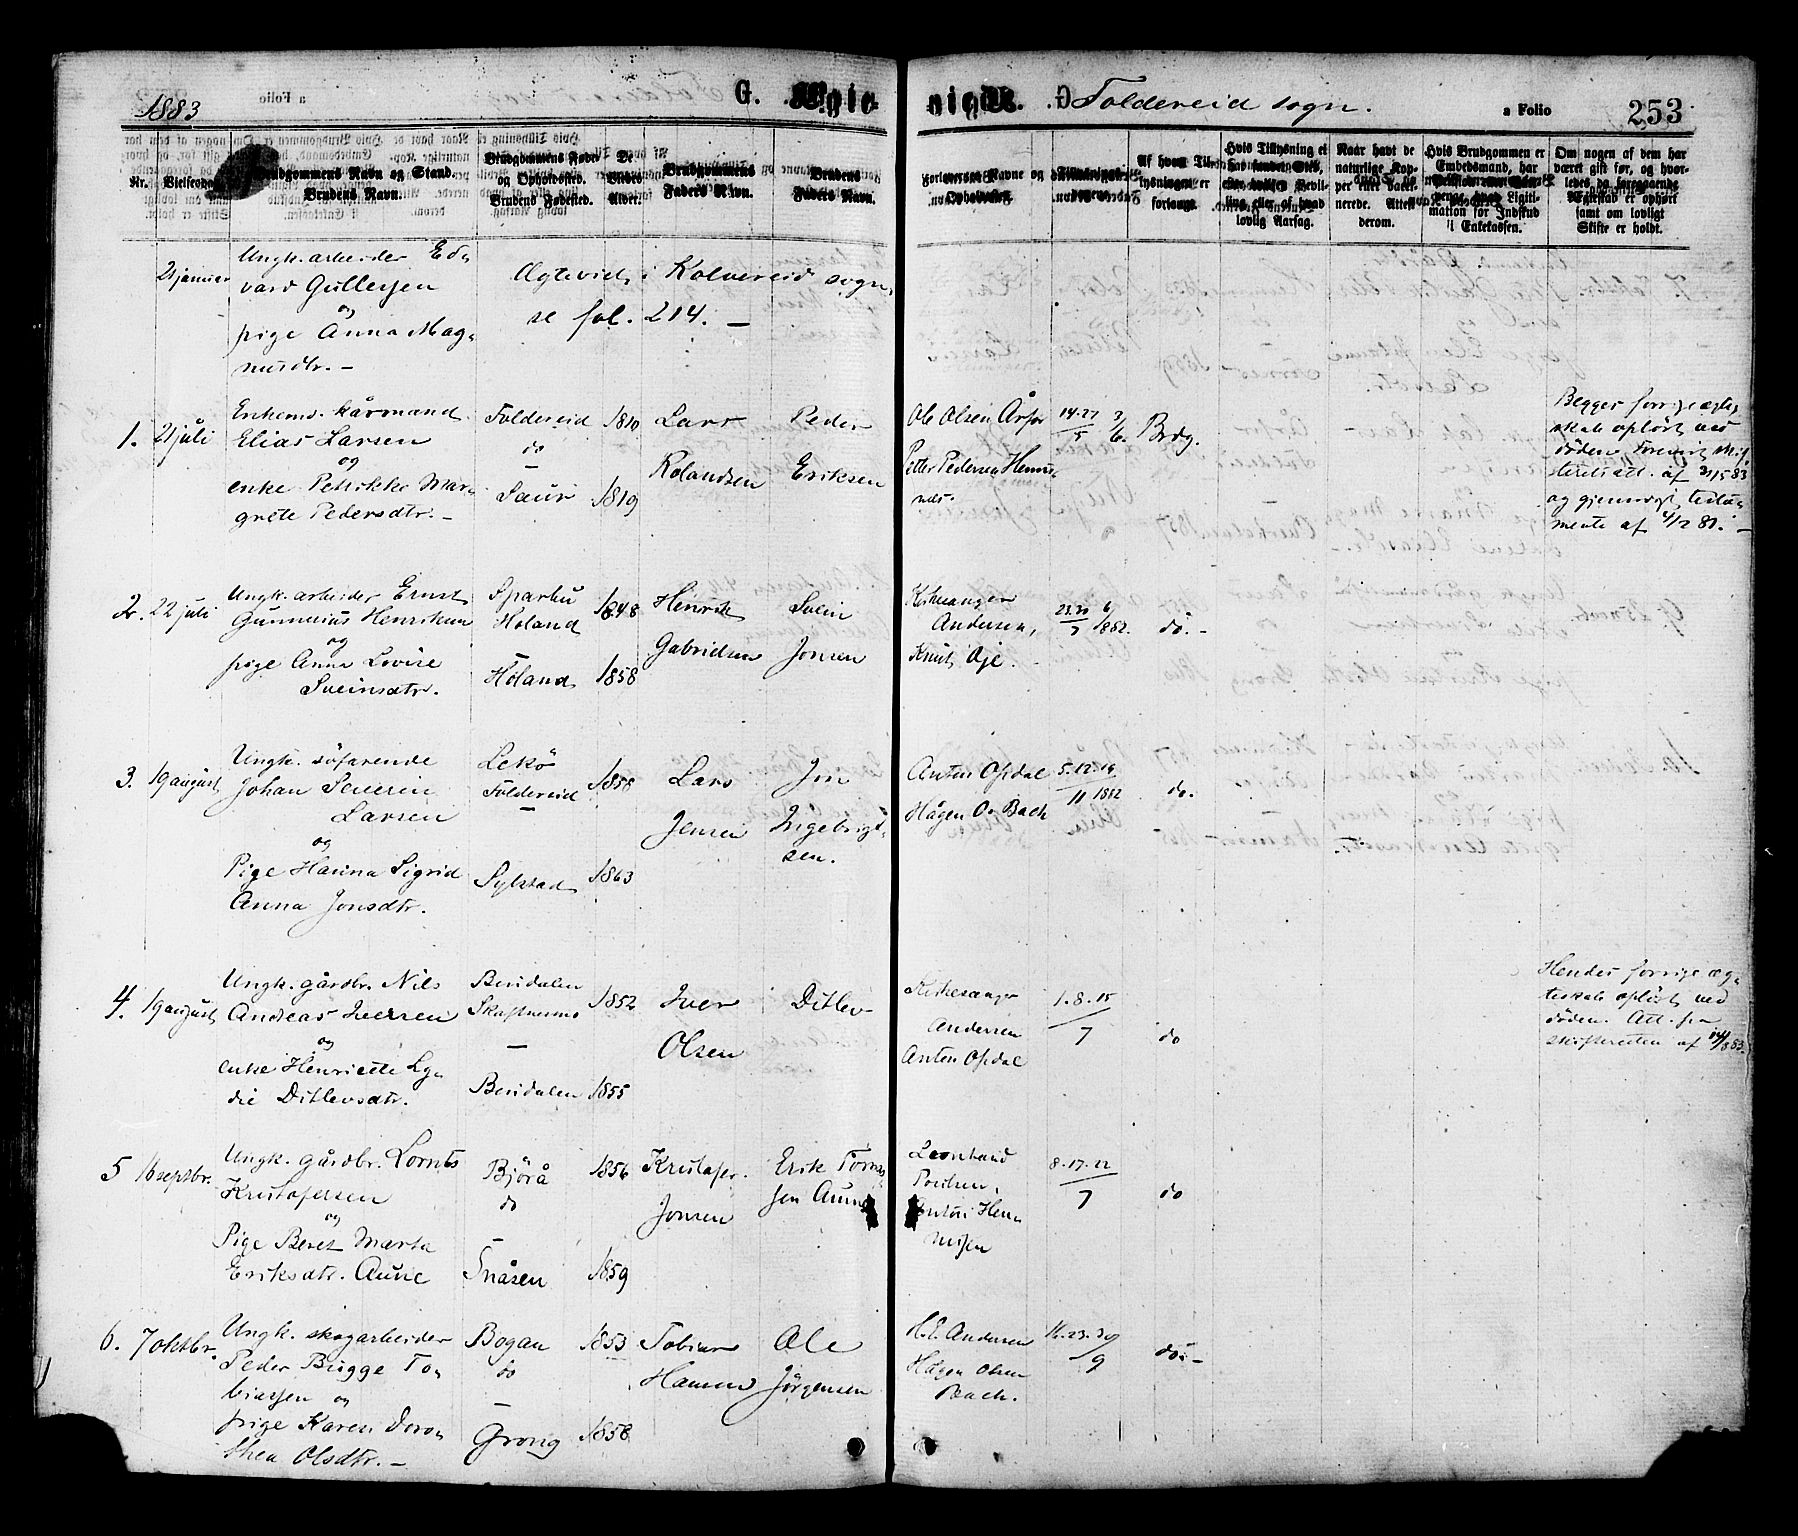 1883
G. Foldereid sogn. a Folio 253
Nr.
Vielsesdag
Brudgommens Navn og Stand.
Brudens Navn.
Brudgommens Føde-
og Opholdssted.
Brudens Fødested.
De
Viedes
Alder.
Brudgommens
Faders Navn.
Brudens
Faders Navn.
Forlovernes Navne og
Opholdssted.
Af hvem Til-
lysningen er
forlangt.
Hvis Tillysning ei
lovlig Aarsag.
Naar havt de
naturlige Kop-
per eller vacci-
nerede. Attest
derom.
Hvis Brudgommen er
Embedsmand, har
mation for Indskud
i Enkekassen.
Om nogen af dem har
været gift før, og hvor-
ledes da foregaaende
Ægteskab er ophørt
samt om lovligt
Skifte er holdt.
21 januar
Ungk. arbeider Ed-
vard Gullersen
og
pige Anna Mag-
nusdtr. -
Ægteviet i Kolvereid sogn,
se fol. 214. -
1. 21 juli
Enkemd. kårmand
Elias Larsen
og
enke Petrikke Mar-
grete Pedersdtr. -
Foldereid
do
-
Saur
1810
1819
Lars
Rolandsen
Peder
Eriksen
Ole Olsen Årfor
Petter Pedersen Hemns-
nes.
14.27
5
3/6.
Brdg.
Begges forrige ægte-
skab oplöst ved
döden. Forevist skif-
teretsatt. af 31/5 83
og gjensidigt testa-
mente af 4/2 81. -
2. 22 juli
Ungk. arbeider Ernst
Gunnerius Henriksen
og
pige Anna Lovise
Sveinsdtr.
Sparbu
Höland
-
Höland
1848
1858
Henrik
Gabrielsen
Svein
Jonsen
Kirkesanger
Andersen,
Knut Öje.
23.30 6
7 /1882.
do. -
3. 19 august
Ungk. söfarende
Johan Severin
Larsen
og
Pige Hanna Sigrid
Anna Jonsdtr.
Lekö
Foldereid
-
Sylstad
1858
1863
Lars
Jensen
Jon
Ingebrigt-
sen.
Anton Opdal
Hågen O. Bach
5.12.19
11 1882
do.
4. 19 august
Ungk. gårdbr. Nils
Andreas Iversen
og
enke Henriette Ly-
die Ditlevsdtr.
Bindalen
-
Bindalen
1852
1855
Iver
Olsen
Ditlev
Kirkesanger
Andersen
Anton Opdal
1.8.15
7
do
Hendes forrige æg-
teskab oplöst ved
döden. Att. fra
skifteretten af 14/8 83.
5 16 septbr.
Ungk. gårdbr. Lornts
Kristofersen
og
Pige Beret Marta
Eriksdtr. Aune
Björå
do
-
Snåsen
1856
1859
Kristofer
Jonsen
Erik Tomas-
sen Aune
Leonhard
Poulsen,
Anton Hem-
mingsen
8.17.22
7
do
6. 7 oktbr.
Ungk. skogarbeider
Peder Bugge To-
biassen og
pige Karen Doro-
thea Olsdtr. -
Bogan
do
-
Grong
1853
1858
Tobias
Hansen
Ole
Jörgensen
H. E. Andersen
Hågen Olsen
Bach.
16.23.30
9
do. -